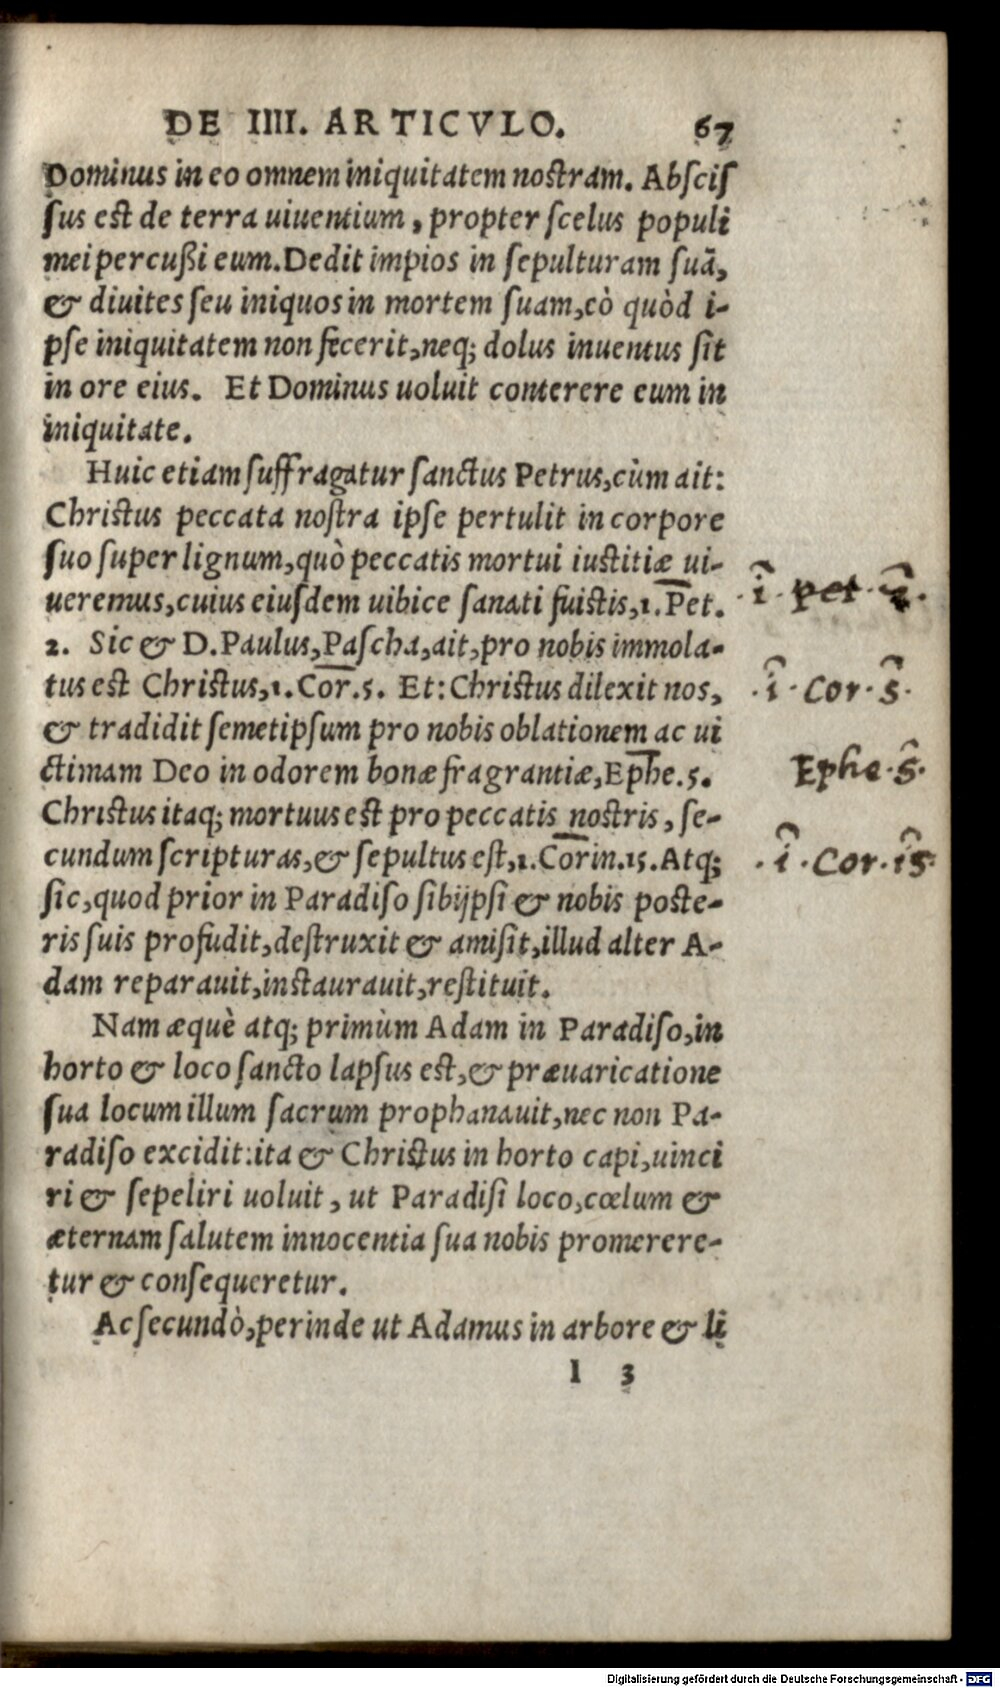 DE IIII. ARTICVLO. 67
Dominus in eo omnem iniquitatem nostram. Abscis
sus est de terra uiuentium, propter scelus populi
mei percußi eum. Dedit impios in sepulturam suã,
& diuites seu iniquos in mortem suam, eò quòd i-
pse iniquitatem non fecerit, neq; dolus inuentus sit
in ore eius. Et Dominus uoluit conterere eum in
iniquitate.
Huic etiam suffragatur sanctus Petrus, cùm ait:
Christus peccata nostra ipse pertulit in corpore
suo super lignum, quò peccatis mortui iustitiæ ui-
ueremus, cuius eiusdem uibice sanati fuistis, 1. Pet.
2. Sic & D. Paulus, Pascha, ait, pro nobis immola-
tus est Christus, 1. Cor. 5. Et: Christus dilexit nos,
& tradidit semetipsum pro nobis oblationem ac ui
ctimam Deo in odorem bonæ fragrantiæ, Ephe. 5.
Christus itaq; mortuus est pro peccatis nostris, se-
cundum scripturas, & sepultus est, 1. Corin. 15. Atq;
sic, quod prior in Paradiso sibijpsi & nobis poste-
ris suis profudit, destruxit & amisit, illud alter A-
dam reparauit, instaurauit, restituit.
Nam æquè atq; primùm Adam in Paradiso, in
horto & loco sancto lapsus est, & præuaricatione
sua locum illum sacrum prophanauit, nec non Pa-
radiso excidit: ita & Christus in horto capi, uinci
ri & sepeliri uoluit, ut Paradisi loco, cœlum &
æternam salutem innocentia sua nobis promerere-
tur & consequeretur.
Ac secundò, perinde ut Adamus in arbore & li
l 3
·1· pet · 2 ·
·1· Cor · 5 ·
Ephe · 5 ·
·1· Cor · 15 ·
Digitalisierung gefördert durch die Deutsche Forschungsgemeinschaft - DFG